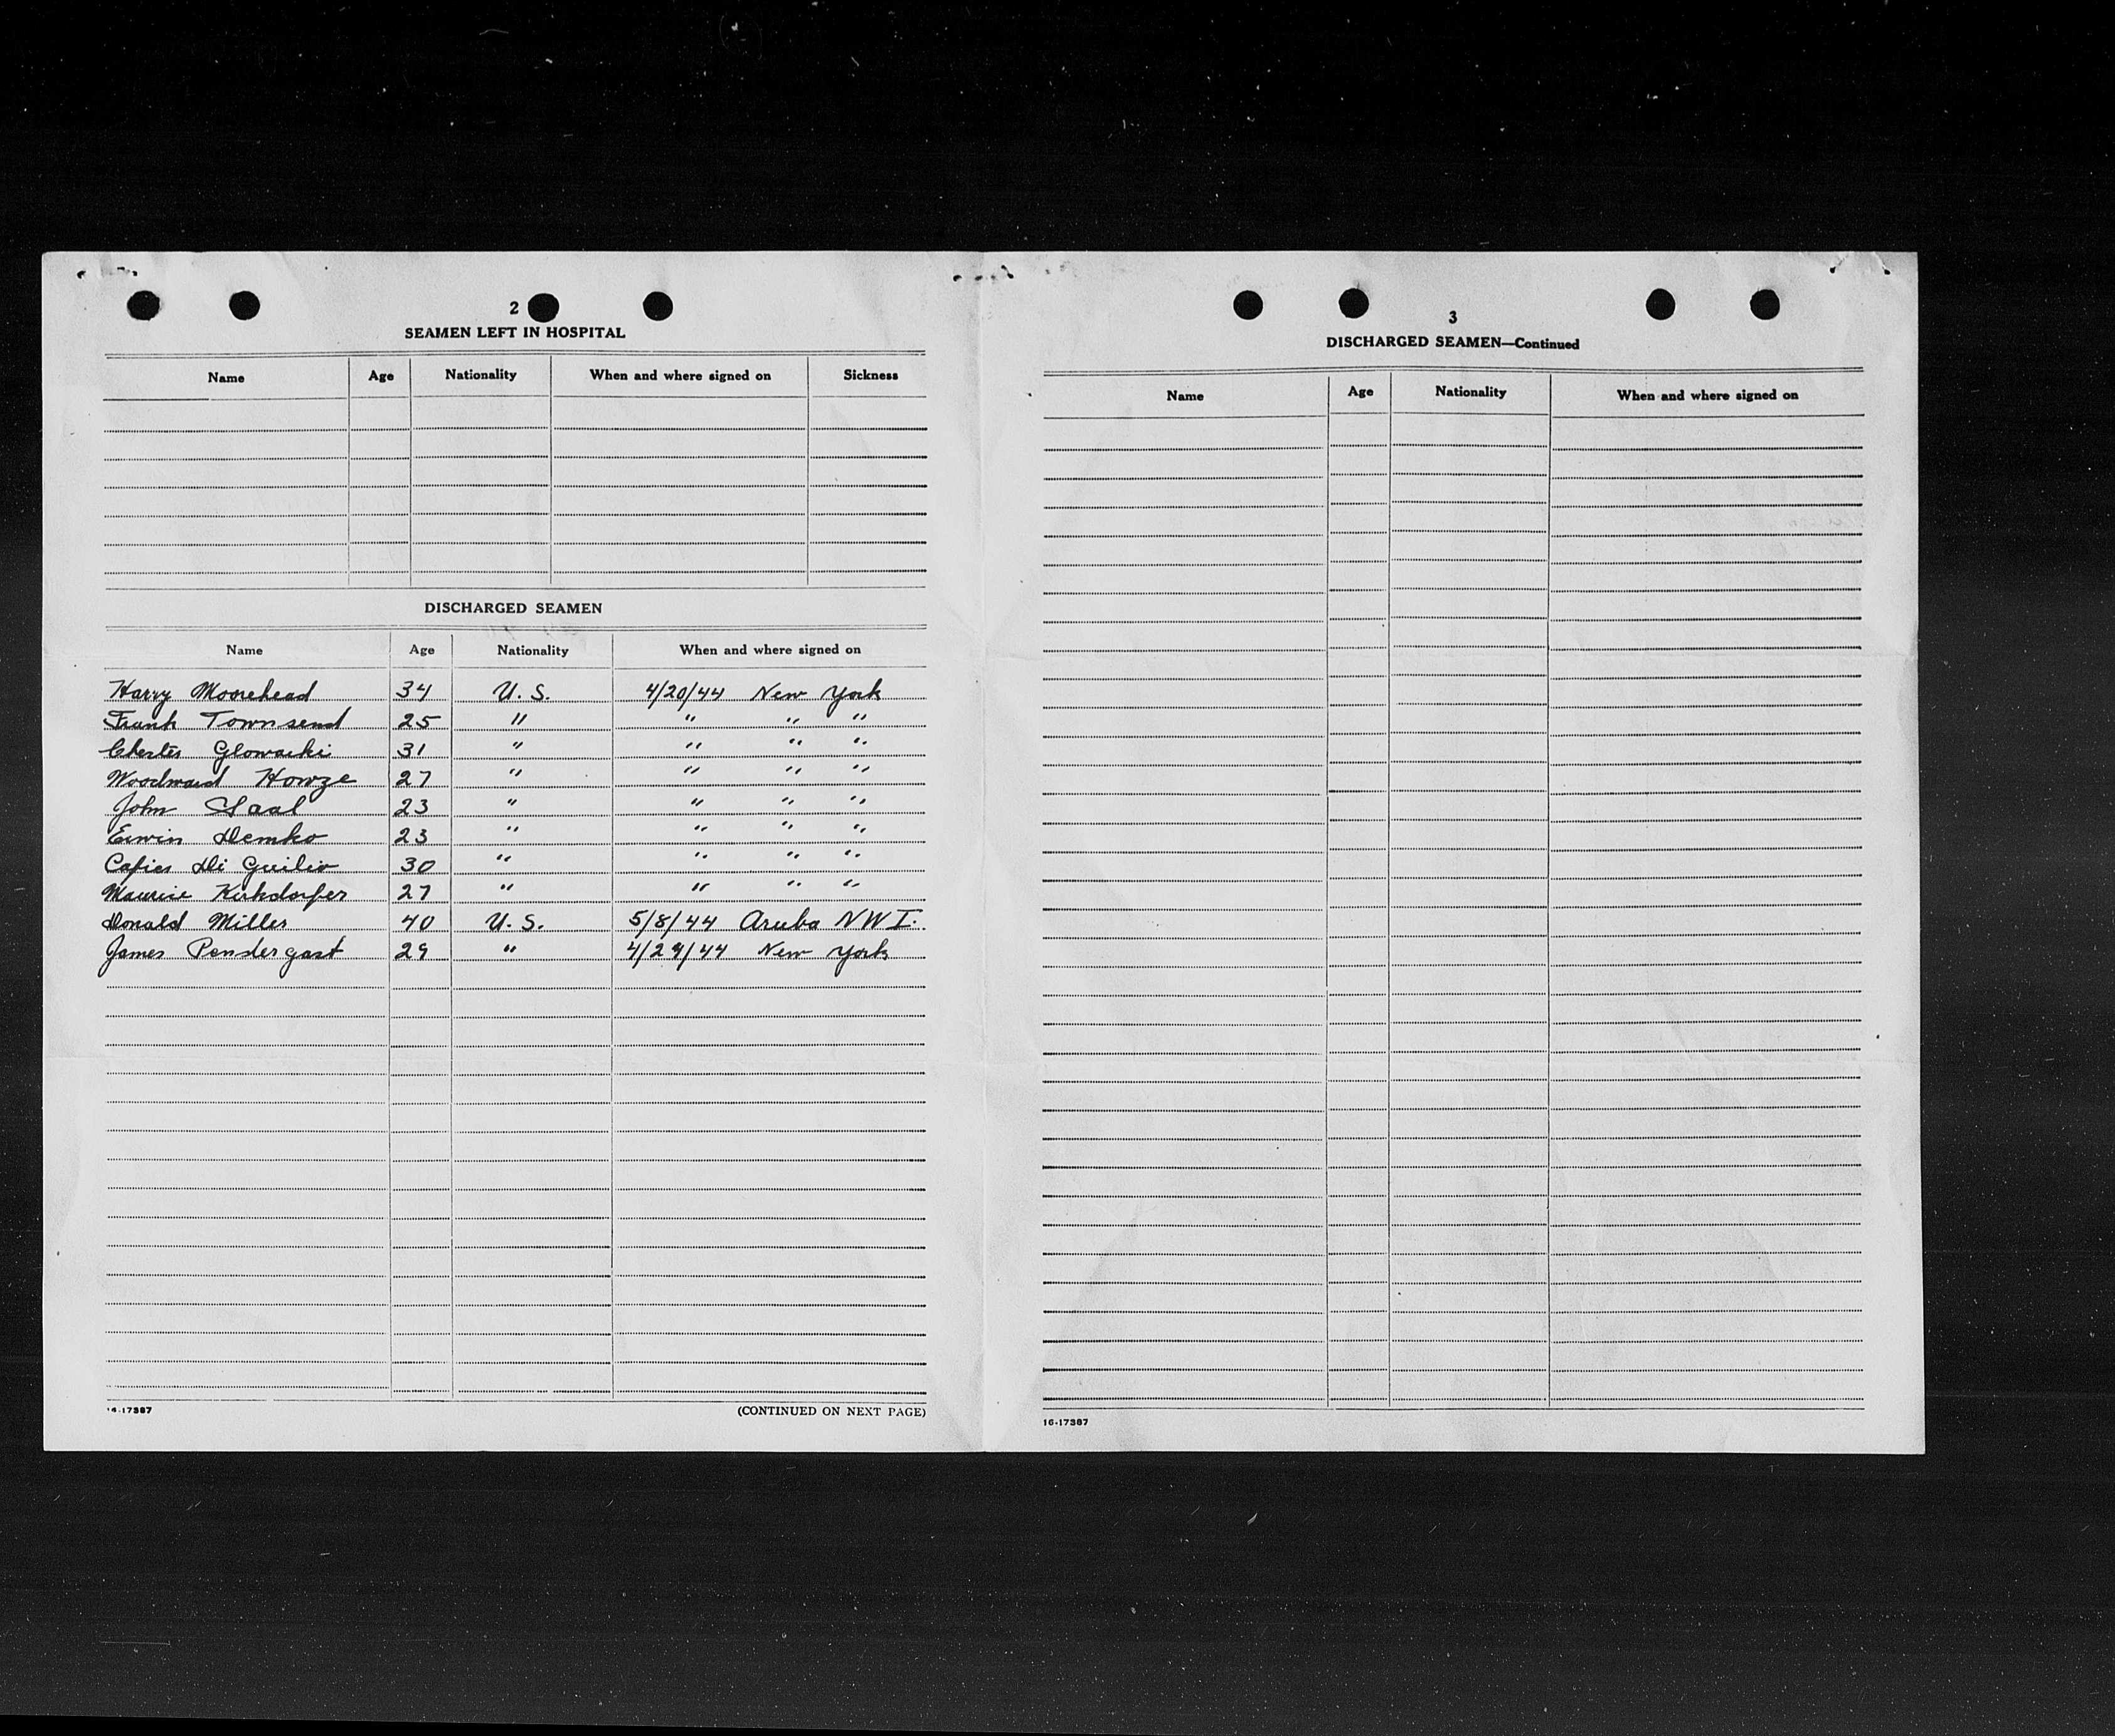 2
SEAMEN LEFT IN HOSPITAL
Name Age Nationality When and where signed on Sickness
DISCHARGED SEAMEN
Name Age Nationality When and where signed on
Harry Moorehead 34 U. S. 4/20/44 New York
Frank Townsend 25 " " " "
Chester Glowacki 31 " " " "
Woodward Howze 27 " " " "
John Staal 23 " " " "
Erwin Demko 23 " " " "
Di Guilio 30 " " " "
Maurice Kirkdorfer 27 " " " "
Donald Miller 40 U. S. 5/8/44 Aruba NWI.
James Pendergast 29 " 4/29/44 New York
16-17387 (CONTINUED ON NEXT PAGE)
3
DISCHARGED SEAMEN—Continued
Name Age Nationality When and where signed on
16-17387